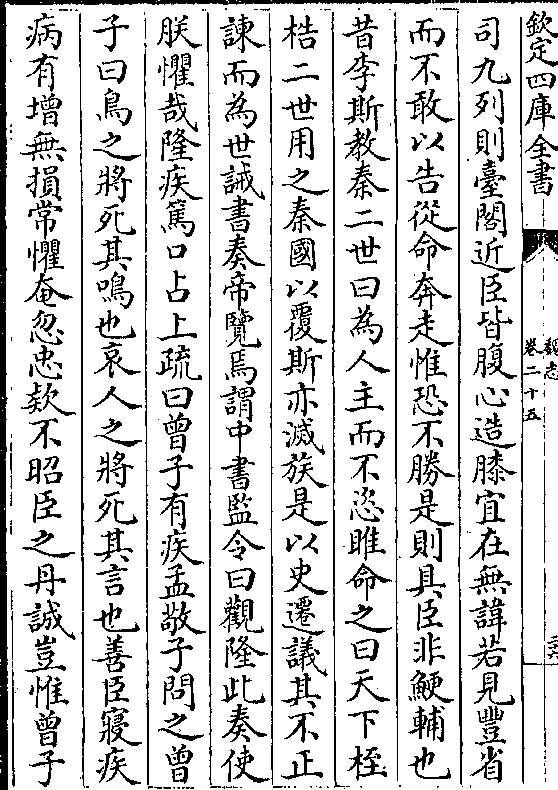 欽定四庫全書
魏志
卷二十五
司九列則臺閣近臣皆腹心造膝宜在無諱若見豐省
而不敢以告從命奔走惟恐不勝是則具臣非鯁輔也
昔李斯教秦二世曰為人主而不恣睢命之曰天下桎
梏二世用之秦國以覆斯亦滅族是以史遷議其不正
諫而為世誡書奏帝覽焉謂中書監令曰觀隆此奏使
朕懼哉隆疾篤口占上疏曰曾子有疾孟敬子問之曾
子曰鳥之將死其鳴也哀人之將死其言也善臣寢疾
病有增無損常懼奄忽忠款不昭臣之丹誠豈惟曾子